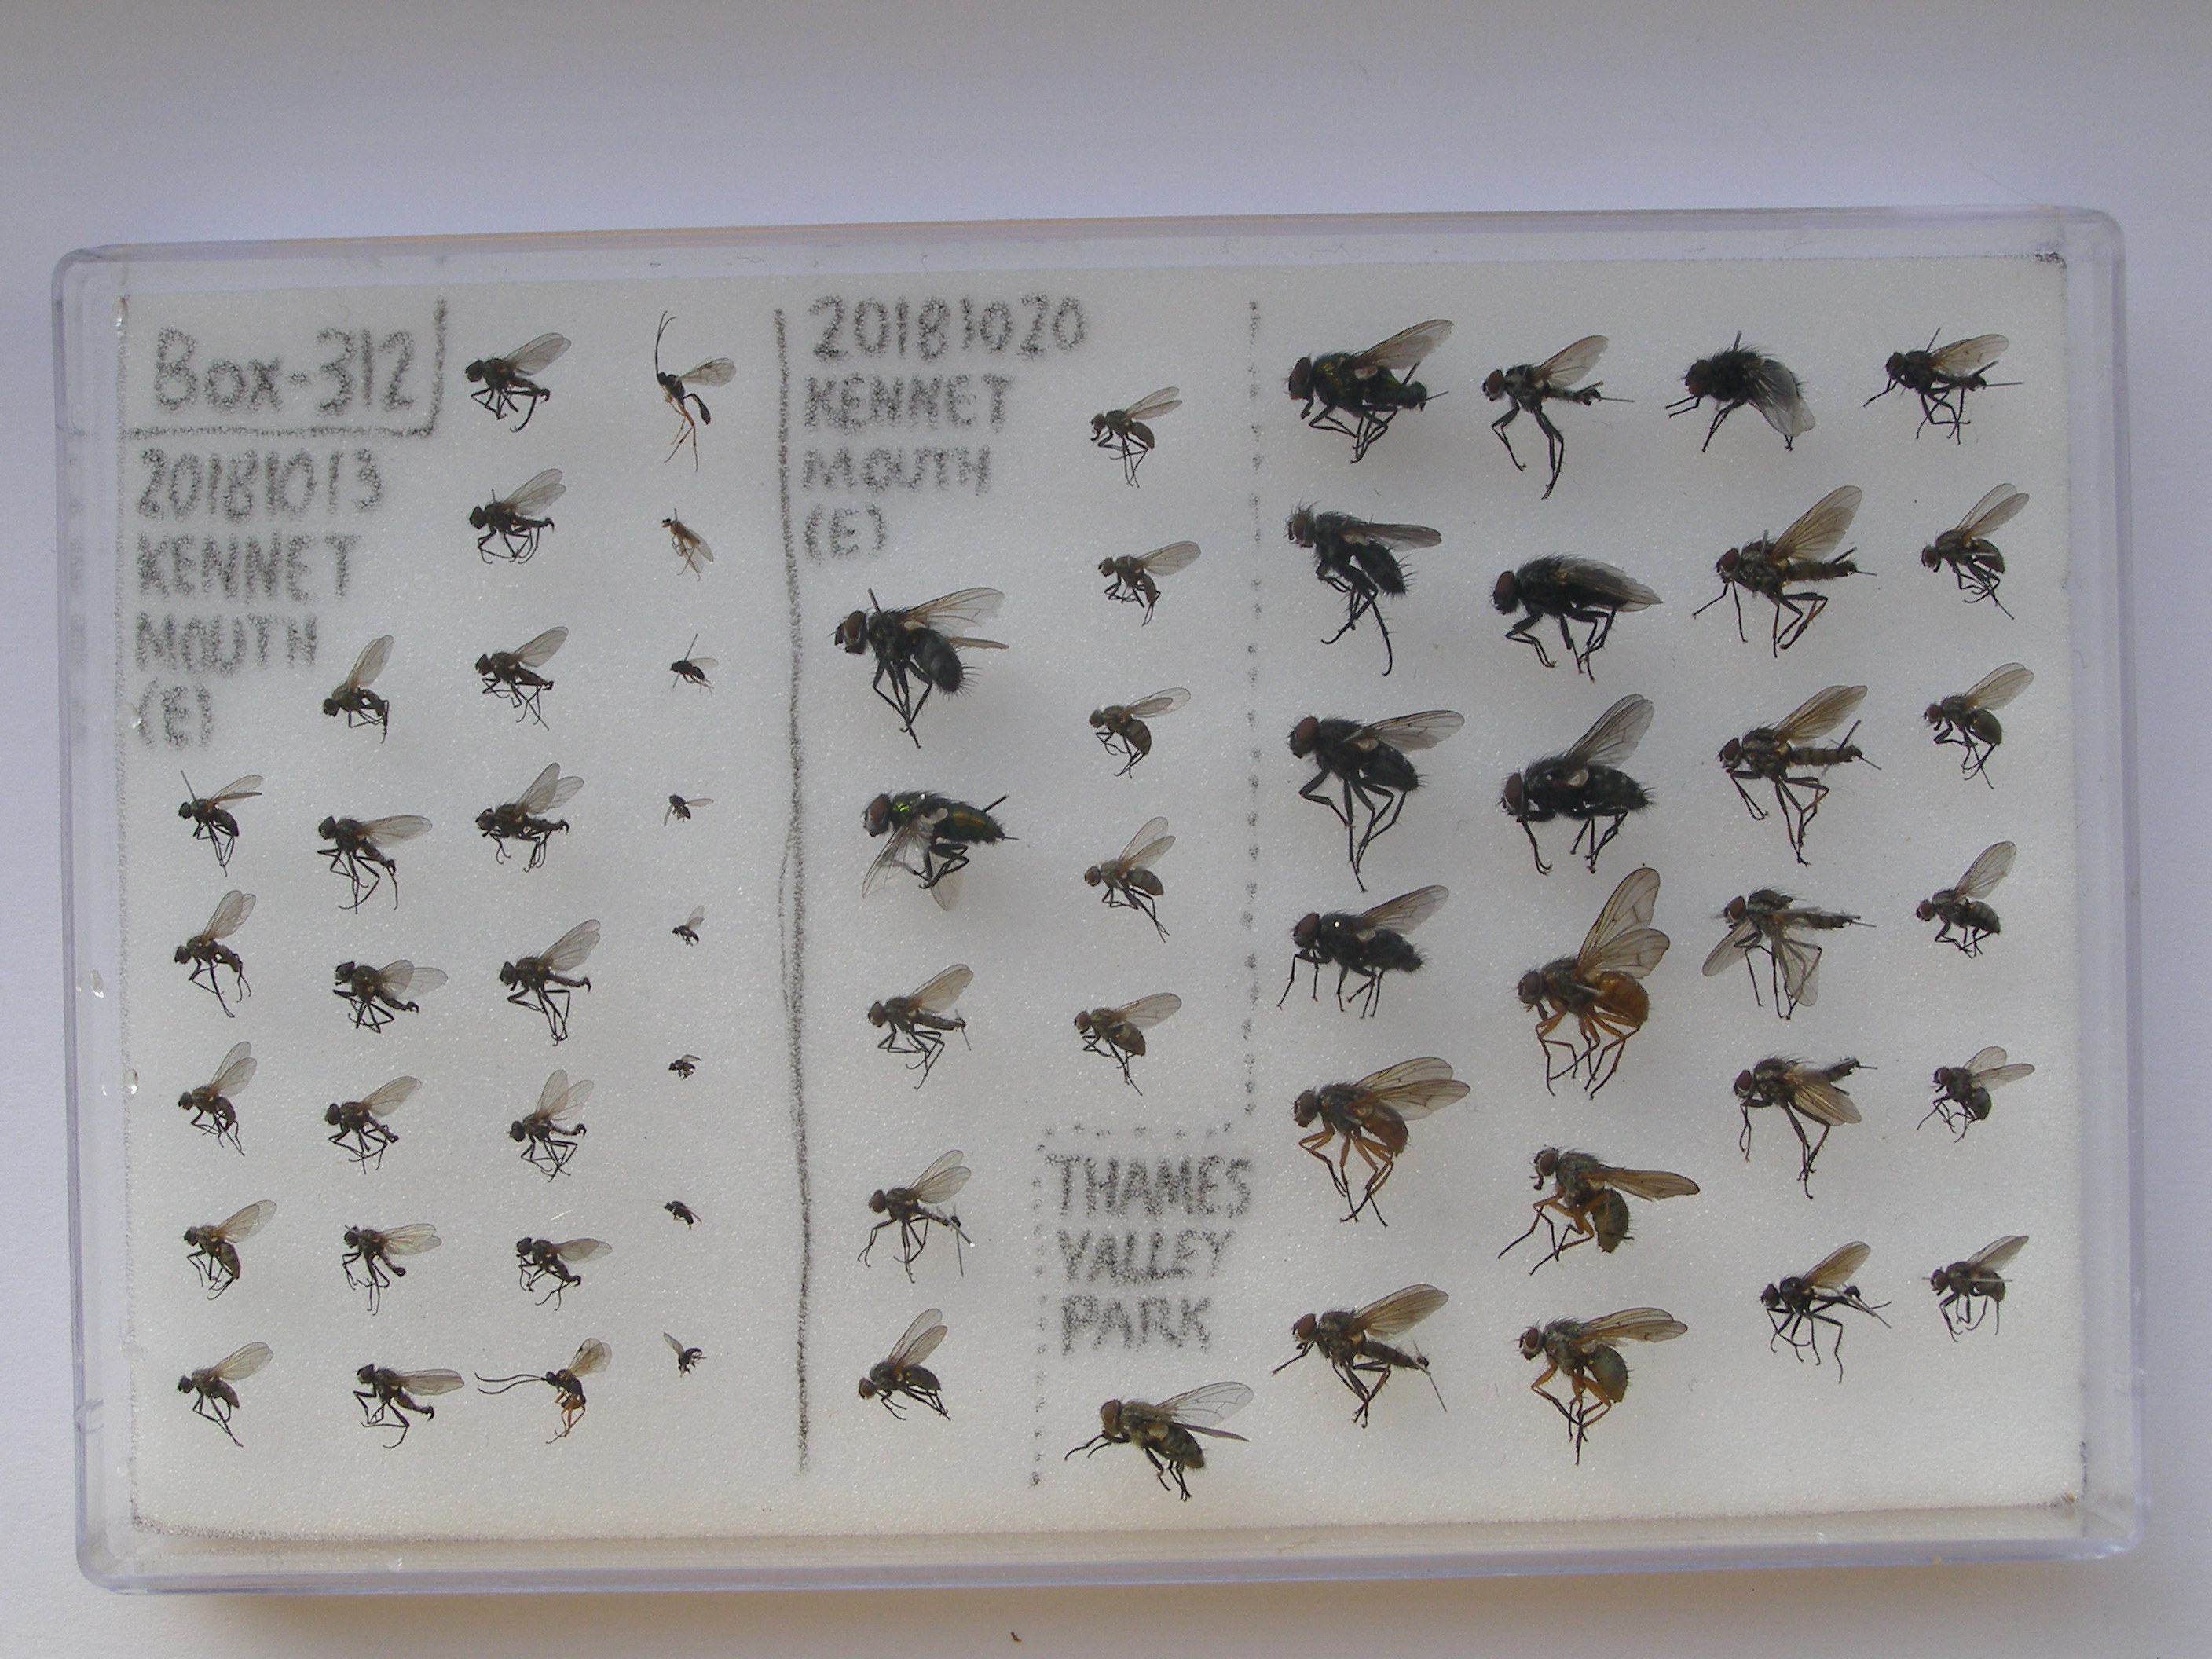 Box-312
20181013
KENNET
MOUTH
(E)
20181020
KENNET
MOUTH
(E)
THAMES
VALLEY
PARK